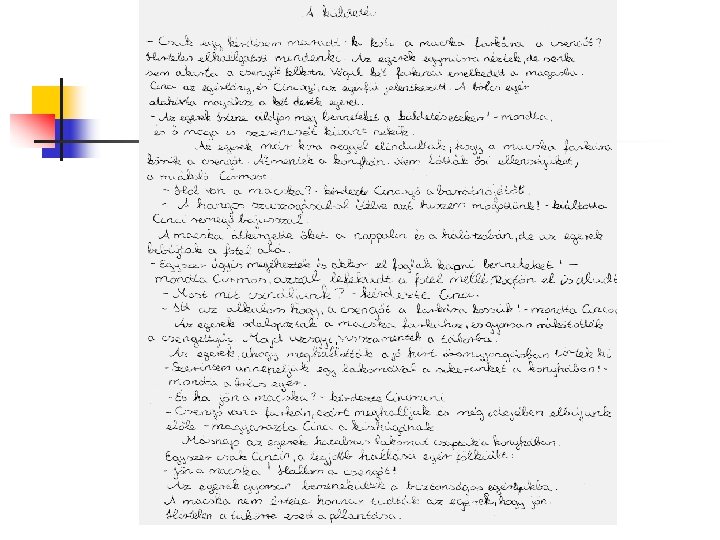 A küldetés
- Csak egy kérdésem maradt: ki köti a macska farkára a csengőt?
Hirtelen elhallgatott mindenki. Az egerek egymásra néztek, de senki
sem akarta a csengőt felkötni. Végül két farkinca emelkedett a magasba.
Cinci az egérlány, és Cincogi, az egérfiú jelentkezett. A bölcs egér
alaposan a két derék egeret.
- Az egerek Istene áldjon meg benneteket a küldetésetekben! - mondta,
és ő maga is szerencsét kívánt nekik.
Az egerek már kora reggel elindultak, hogy a macska farkára
kössék a csengőt. Átmentek a konyhán. Nem látták ősi ellenségüket,
a Cirmost.
- Hol van a macska? - kérdezte Cincogó a barátnőjétől.
- A hangos szuszogásából ítélve azt hiszem mögöttünk! - kiáltotta
Cinci remegő bajusszal.
A macska átkergette őket a nappalin és a hálószobán, de az egerek
bebújtak a fotel alá.
- Egyszer úgyis megéheztek és akkor el foglak kapni benneteket! -
mondta Cirmos, azzal lefeküdt a fotel mellé. Rögtön el is aludt.
- Most mit csináljunk? - kérdezte Cinci.
- Itt az alkalom, hogy a csengőt a farkára kössük! - mondta Cincog
Az egerek odalopóztak a macska farkához, és gyorsan rákötötték
a csengettyűt. Majd uzsgyi, visszamentek a táborba.
Az egerek, ahogy meghallották a jó hírt örömujjongásban törtek ki
- Szerintem ünnepeljük egy lakomával a sikerünket a konyhában! -
mondta a bölcs egér.
- És ha jön a macska? - kérdezte Cincinci
- Csengő van a farkán, ezért meghalljuk és még idejében elbújunk
előle - magyarázta Cinci a kishúgának.
Másnap az egerek hatalmas lakomát csaptak a konyhában.
Egyszer csak Cincin, a legjobb hallású egér fölkiált:
- Jön a macska! Hallom a csengőt!
Az egerek gyorsan bemenekültek a biztonságos egérlyukba.
A macska nem értette honnan tudták az egerek, hogy jön.
Hirtelen a tükörre esett a pillantása.